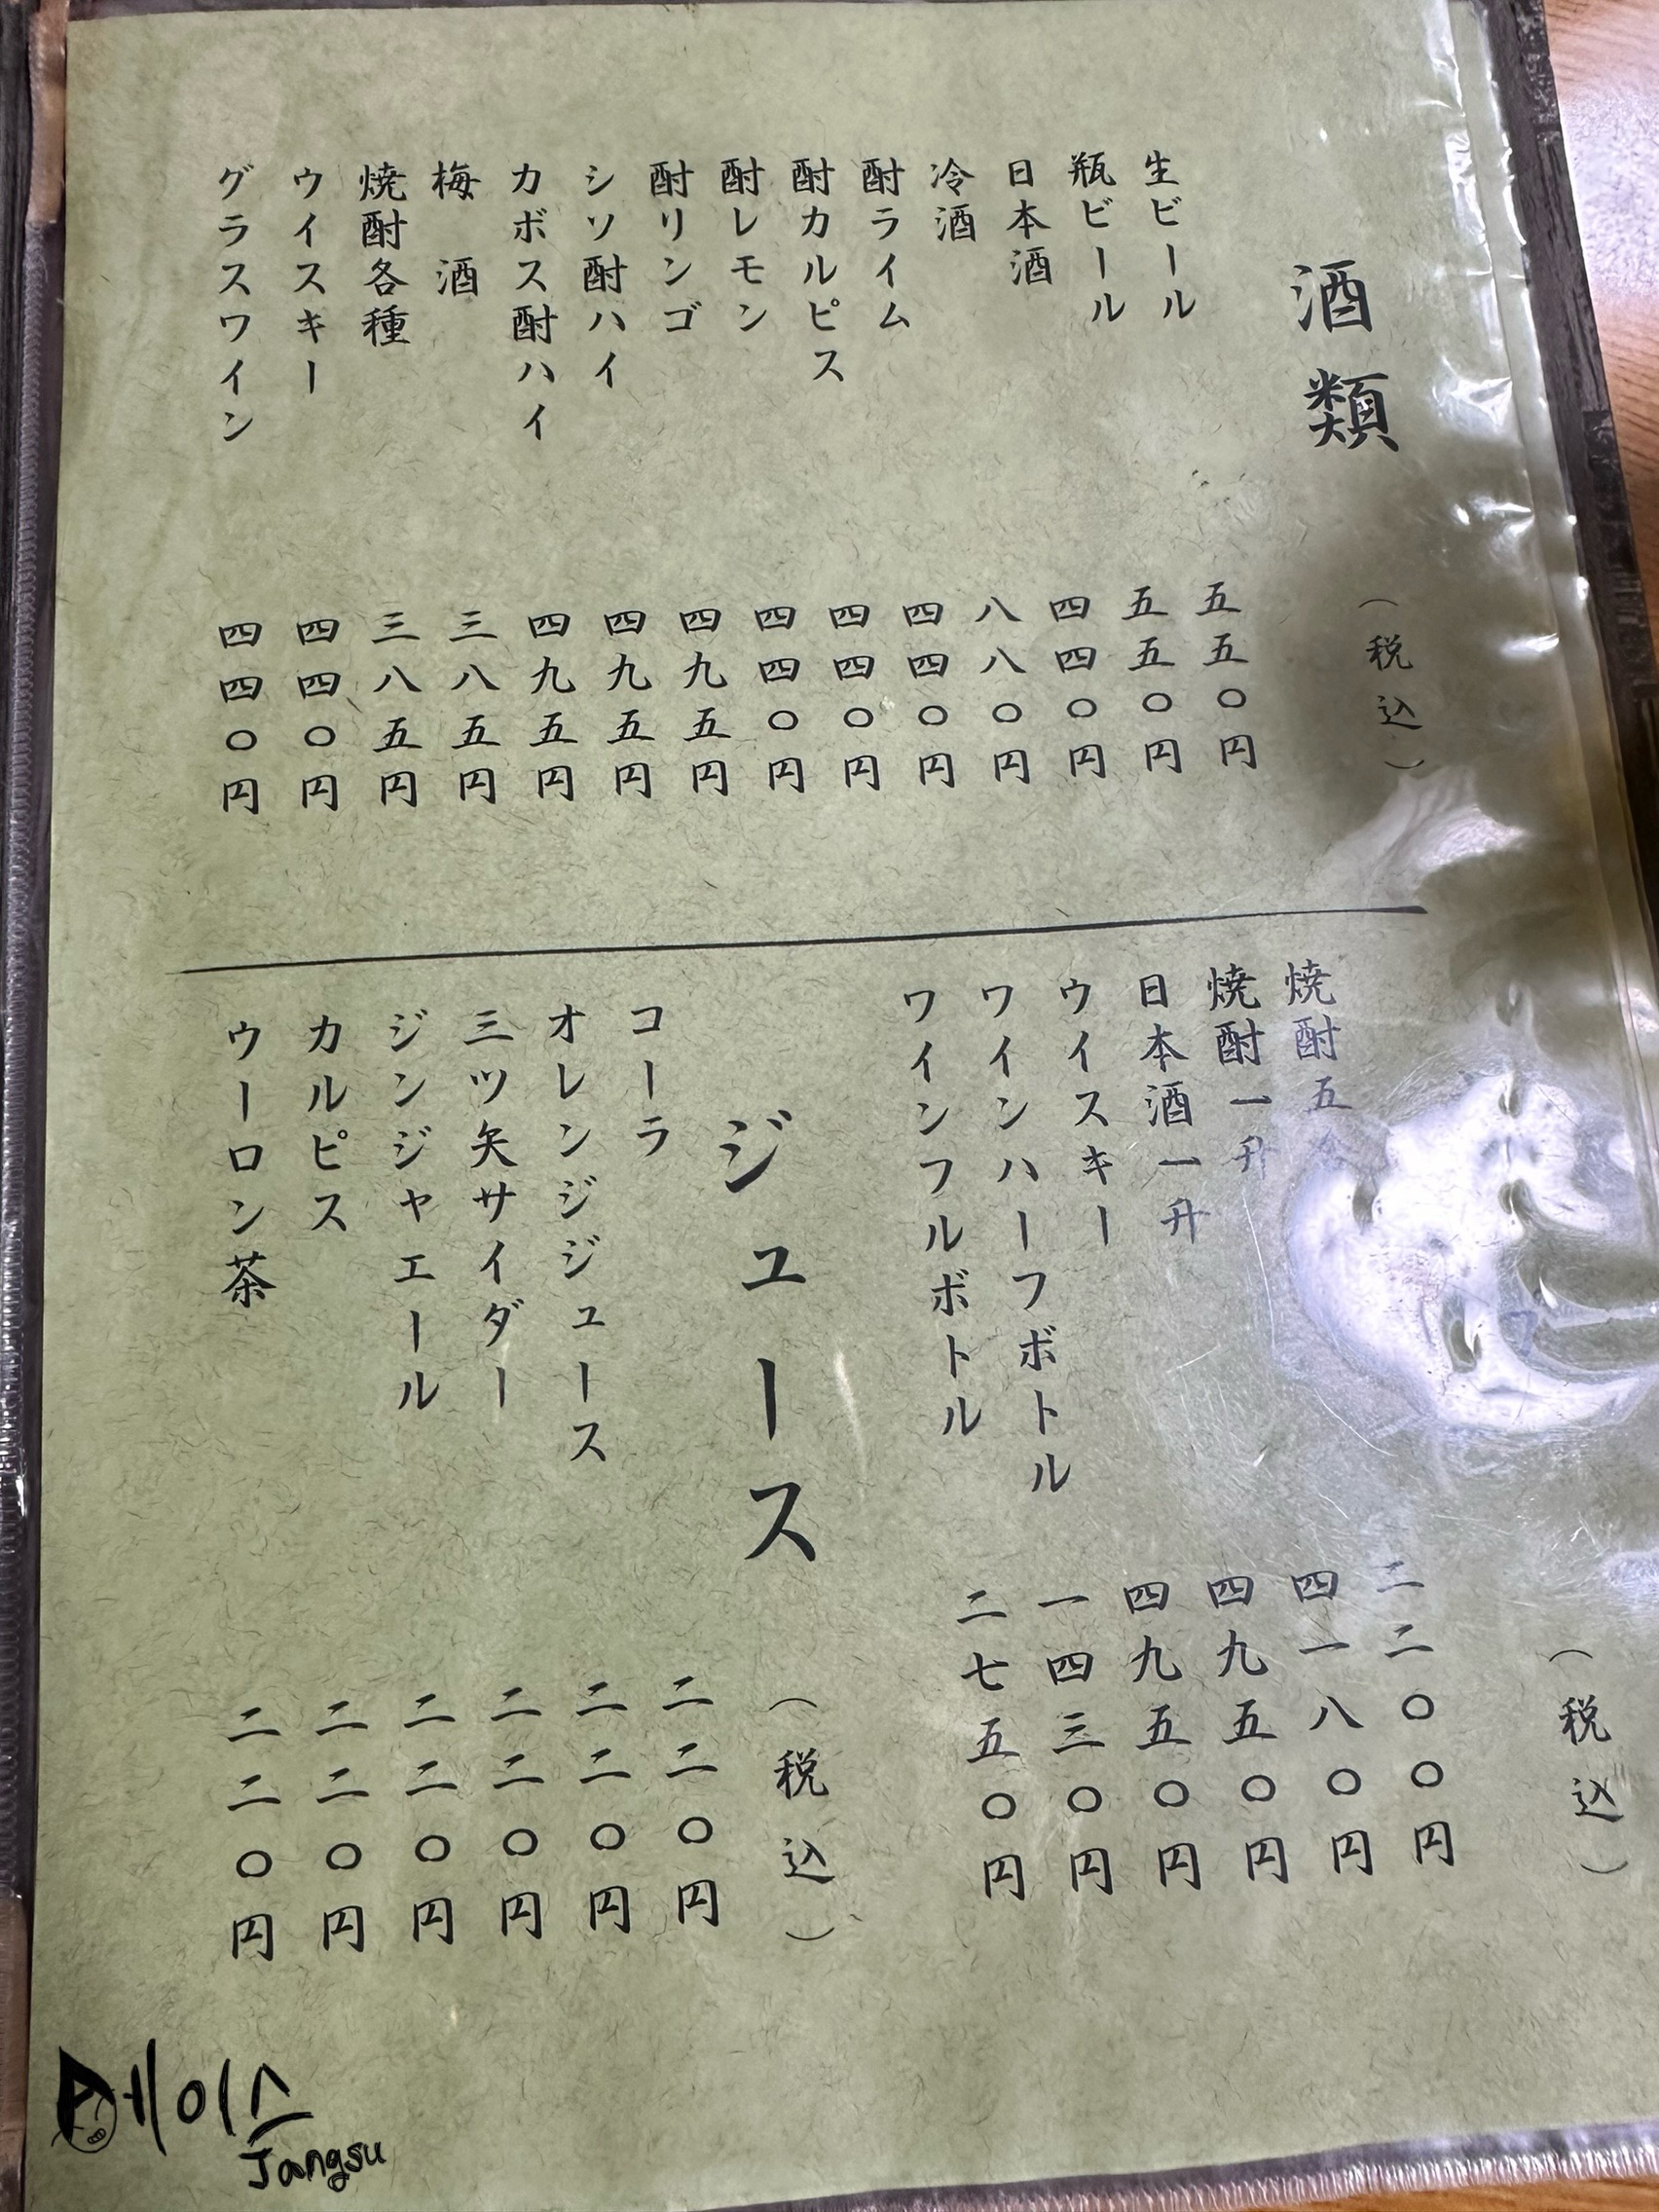 酒類
（税込）
生ビール 五五〇円
瓶ビール 五五〇円
日本酒 四四〇円
冷酒 八八〇円
酎ライム 四四〇円
酎カルピス 四四〇円
酎レモン 四四〇円
酎リンゴ 四九五円
シソ酎ハイ 四九五円
カボス酎ハイ 四九五円
梅酒 三八五円
焼酎各種 三八五円
ウイスキー 四四〇円
グラスワイン 四四〇円
（税込）
焼酎五合 二二〇〇円
焼酎一升 四一八〇円
日本酒一升 四九五〇円
ウイスキー 四九五〇円
ワインハーフボトル 一四三〇円
ワインフルボトル 二七五〇円
ジュース
（税込）
コーラ 二二〇円
オレンジジュース 二二〇円
三ツ矢サイダー 二二〇円
ジンジャエール 二二〇円
カルピス 二二〇円
ウーロン茶 二二〇円
에이스
Jangsu